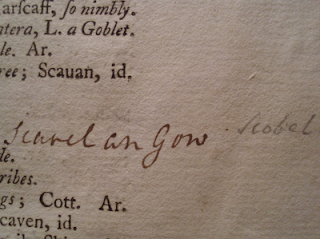 arſcaff, ſo nimbly.
ntera, L. a Goblet.
le. Ar.
ree; Scauan, id.
Scavel an Gow Scobel
le.
ribes.
gs; Cott. Ar.
caven, id.